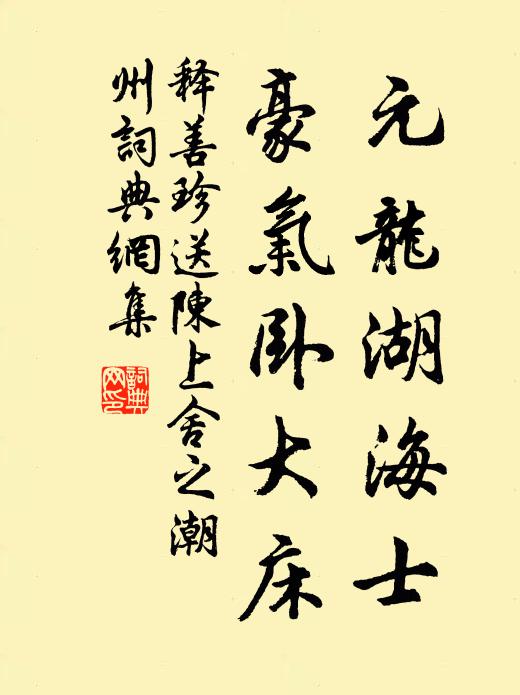 元龍湖海士
豪氣卧大床
释善珍送陳上舍之潮
州詞典網集
詞典
网印